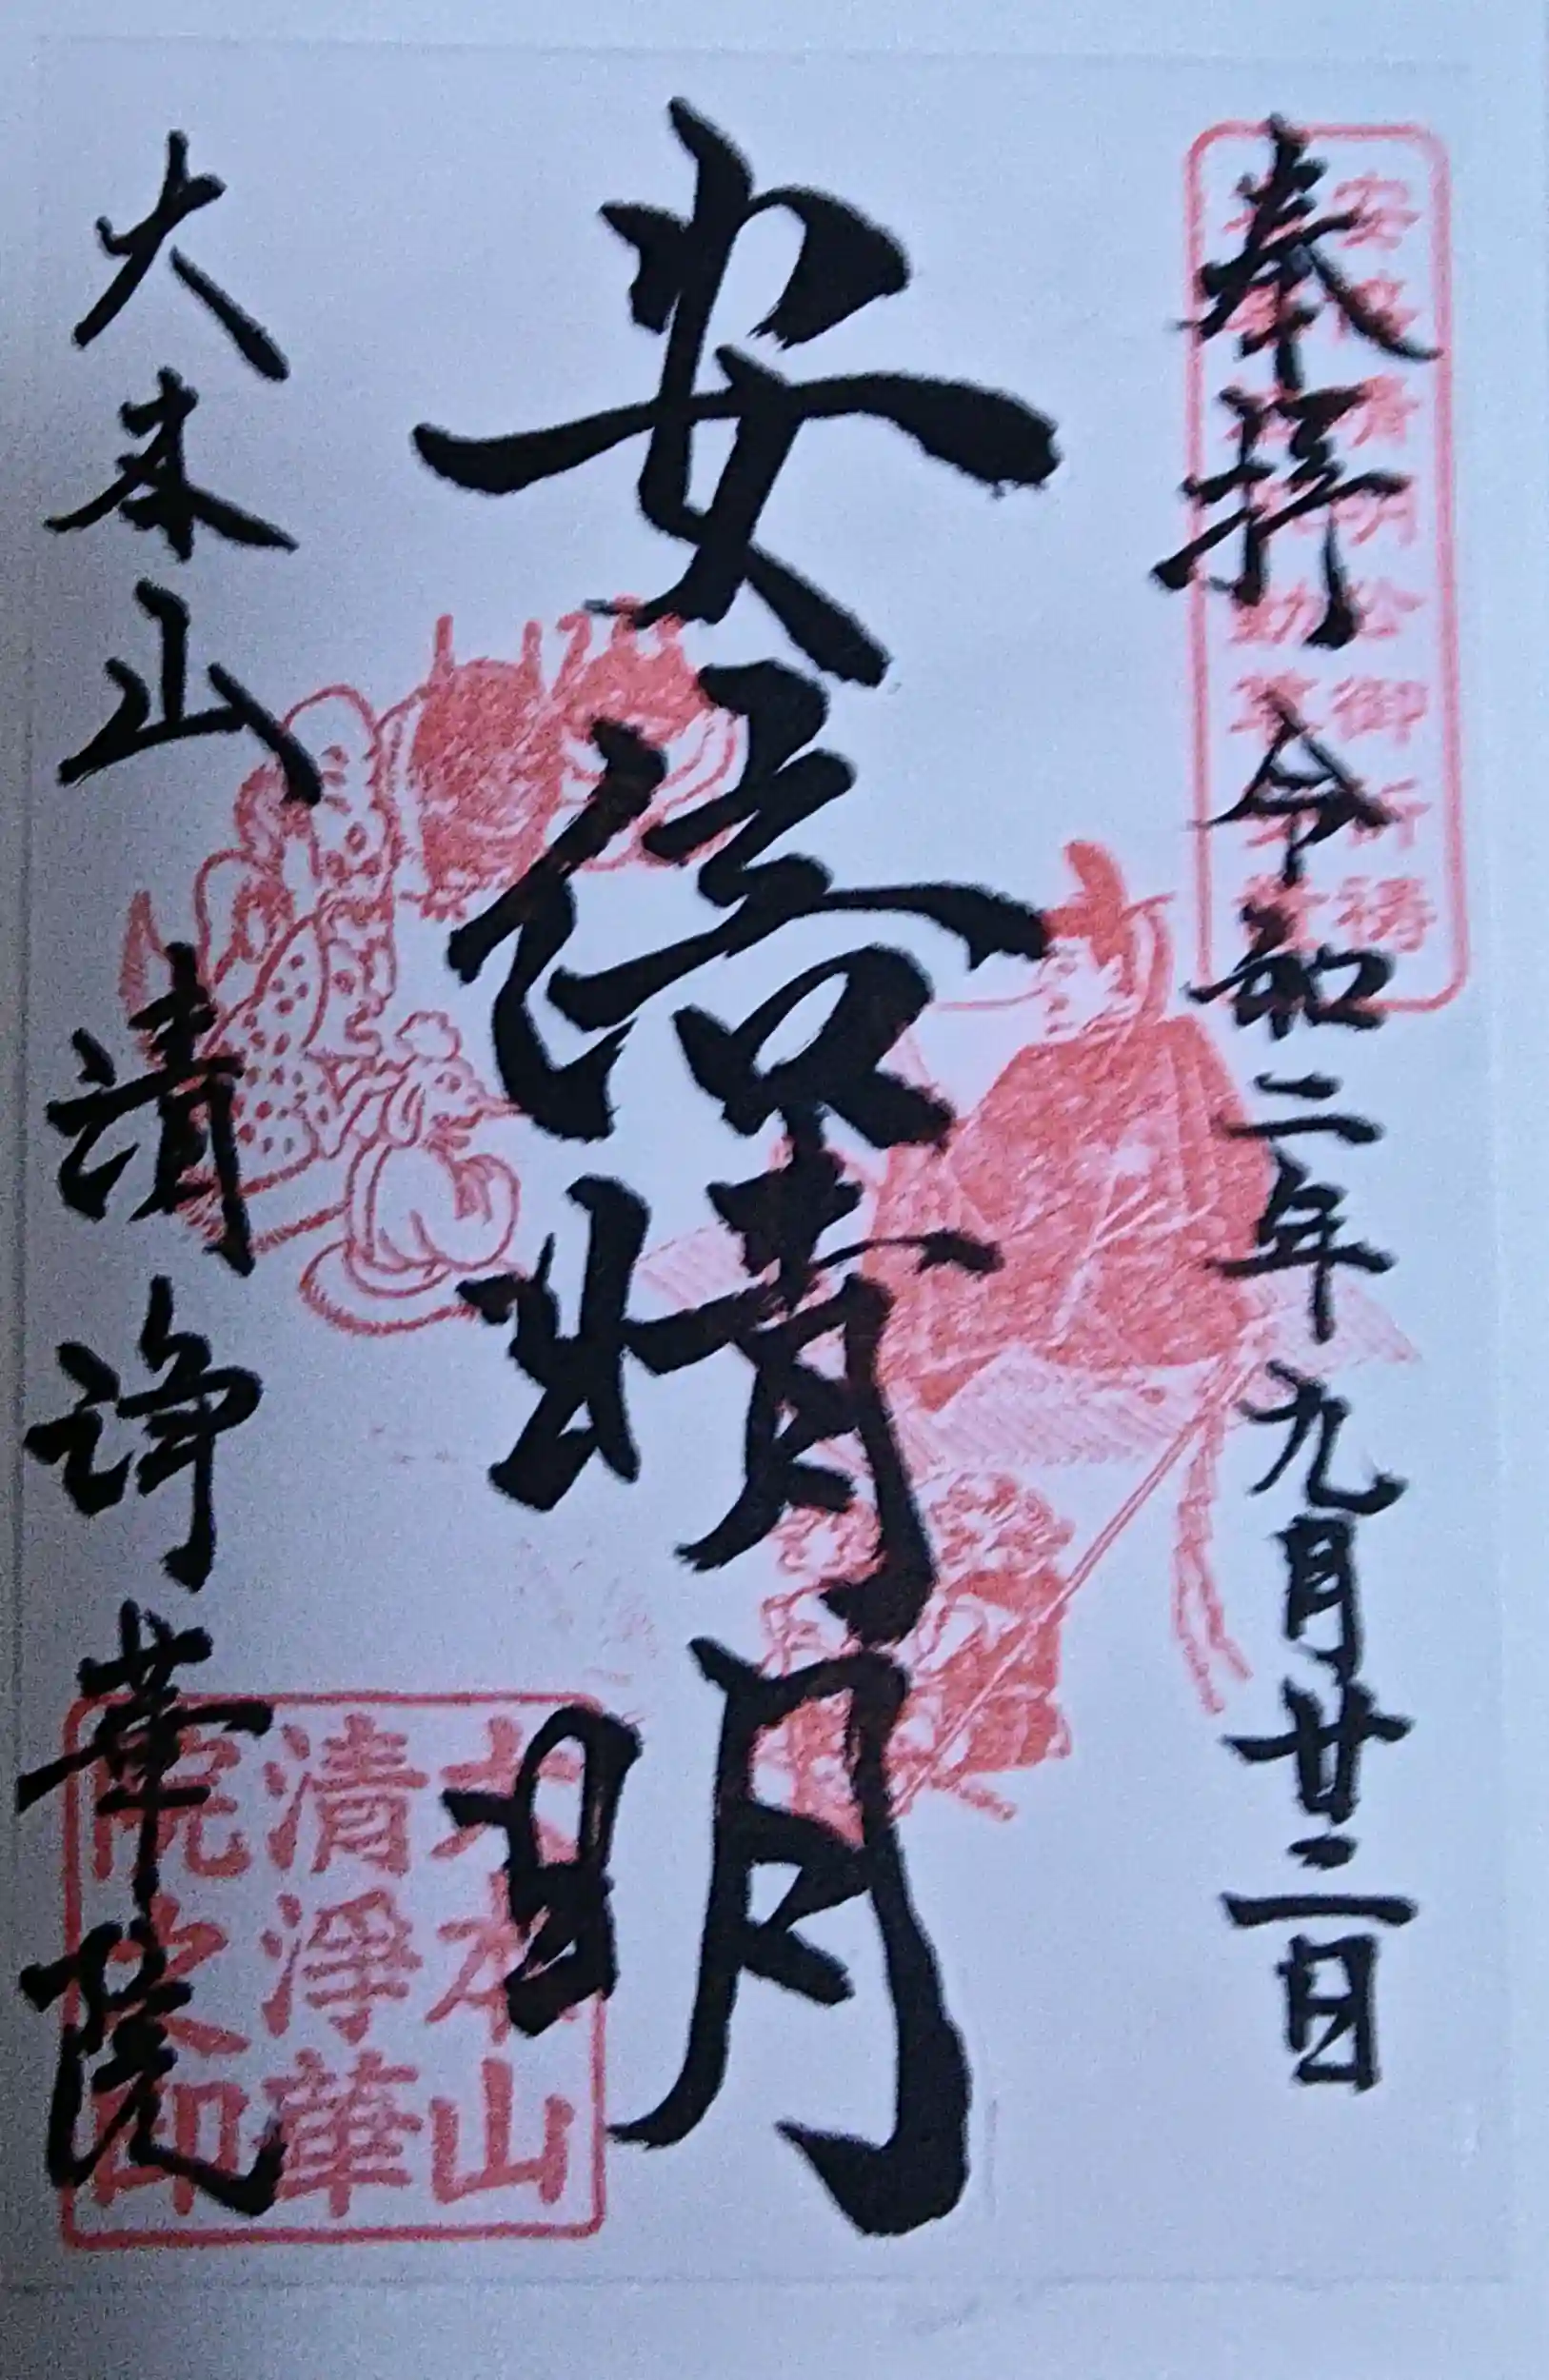 奉拝 令和二年九月廿二日
安倍晴明公御祈祷
安倍晴明
大本山 清浄華院
大本山
清淨華
院之印